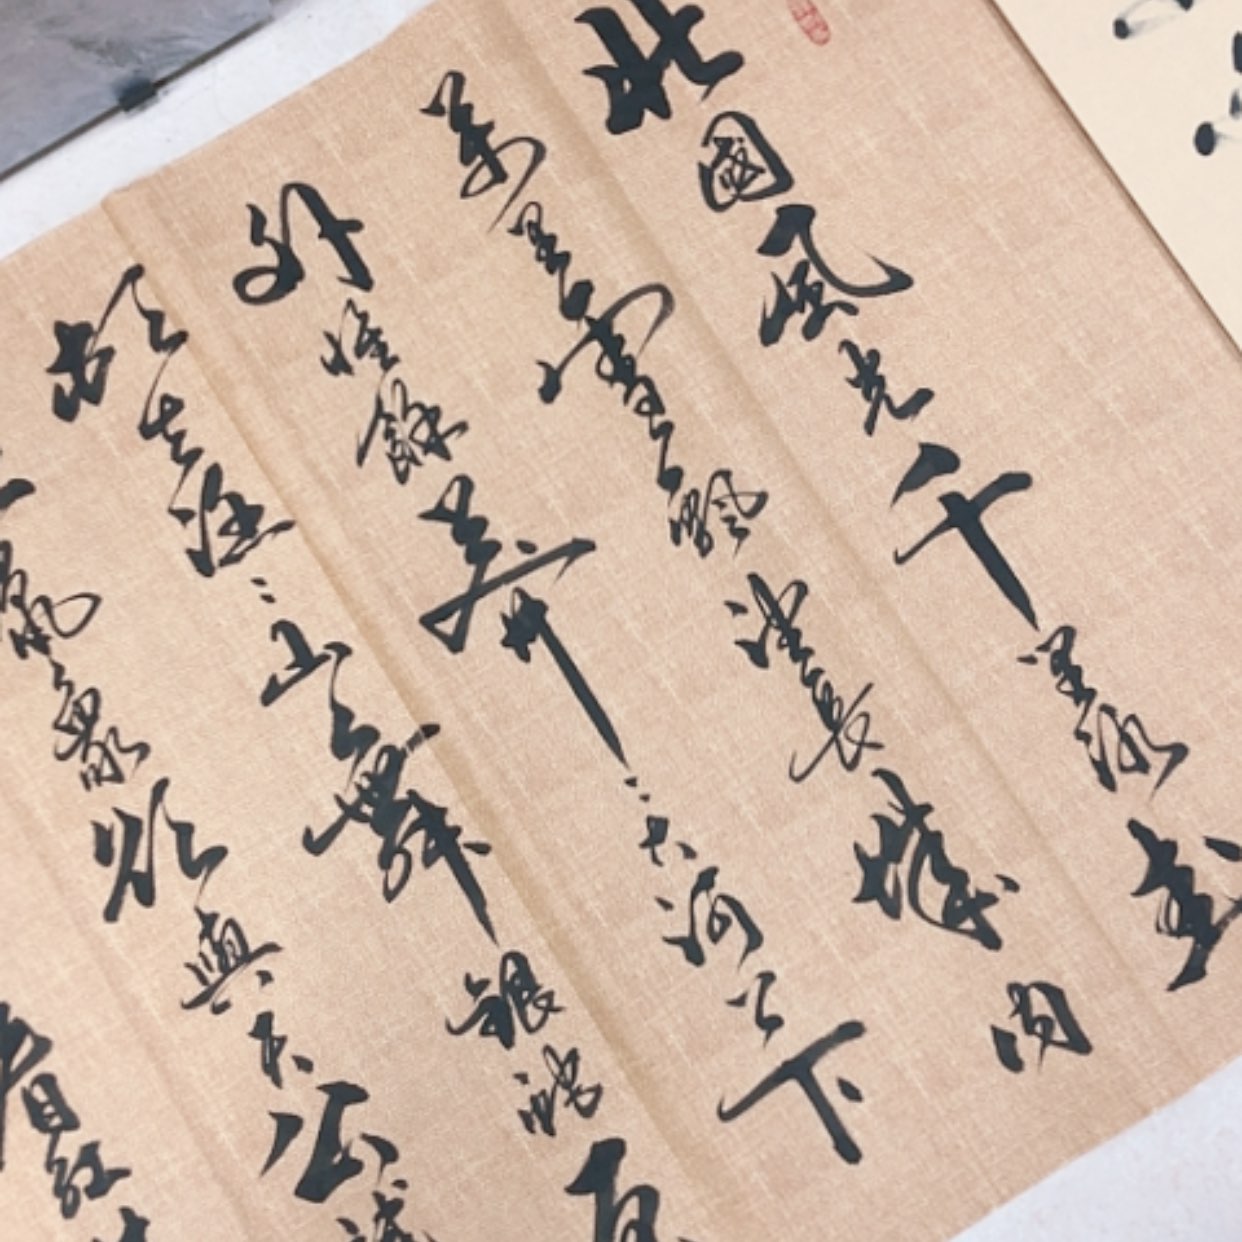 北國風光千里冰封
萬里雪飄望長城內
外惟餘莽〻大河上下
頓失滔〻山舞銀蛇原
象欲與天公試
看紅